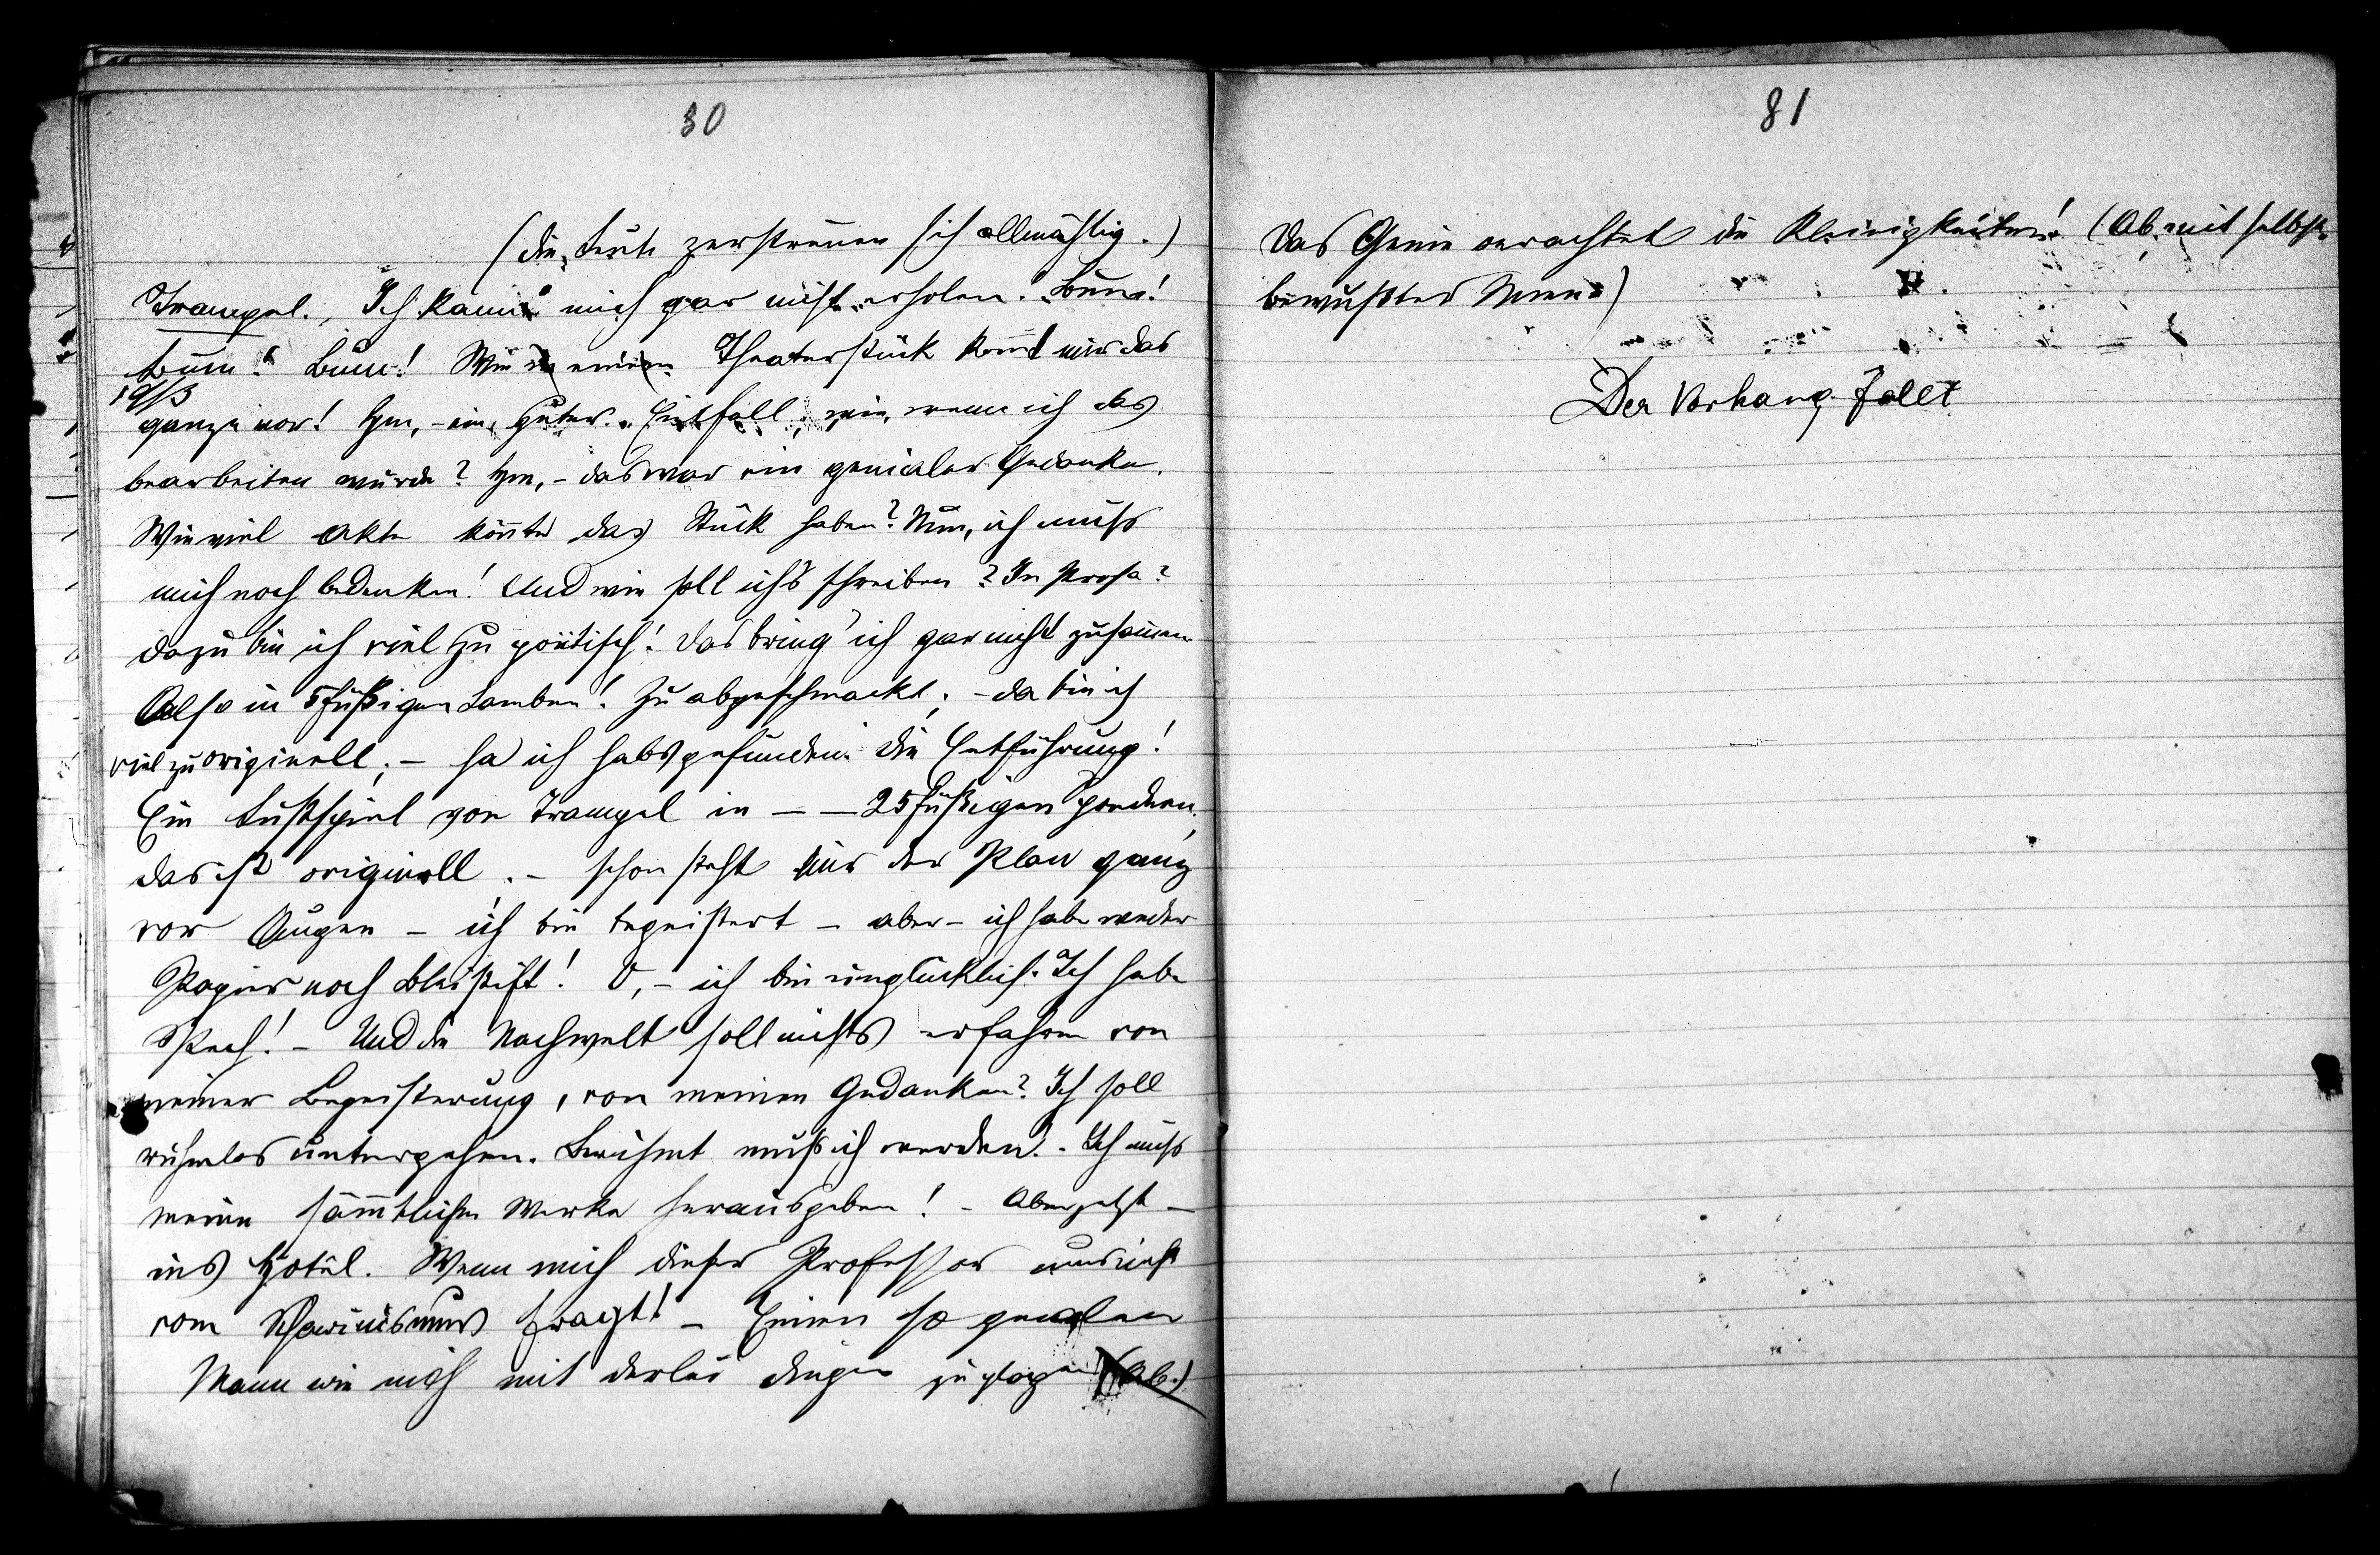 80
(die Leute zerstreuen sich allmählig.)
Trampel. Ich kann mich gar nicht erholen. Bum!
bum! Bum! Wie ein Theaterstück kom̄t mir das
19/3
ganze vor! Hm, - ein guter Einfall, wie, wenn ich das
bearbeiten würde? Hm, - das war ein genialer Gedanke.
Wieviel Akte kön̄te das Stück haben? Nun, ich muß
mich noch bedenken! Und wie soll ichs schreiben? In Prosa?
dazu bin ich viel zu poëtisch! Das bring' ich gar nicht zusam̄en
Also in 5füßigen Jamben! Zu abgeschmackt; - da bin ich
viel zu originell; - ha ich habs gefunden: Die Entführung!
Ein Lustspiel von Trampel in - - 25füßigen
das ist originell. - schon steht mir der Plan ganz
vor Augen - ich bin begeistert - aber - ich habe weder
Papier noch Bleistift! O, - ich bin unglücklich. Ich habe
Pech! - Und die Nachwelt soll nichts erfahren von
meiner Begeisterung, von meinen Gedanken? Ich soll
ruhmlos untergehen. Berühmt muß ich werden! - Ich muß
meine säm̄tlichen Werke herausgeben! - Aber jetzt -
ins Hotel. Wenn mich dieser Professor nur nicht
vom fragt! - Einen so genialen
Mann wie mich mit derlei Dingen zu plagen! (Ab.)
81
Das Genie verachtet die Kleinigkeiten! (Ab mit selbst-
bewußter Miene)
Der Vorhang fällt